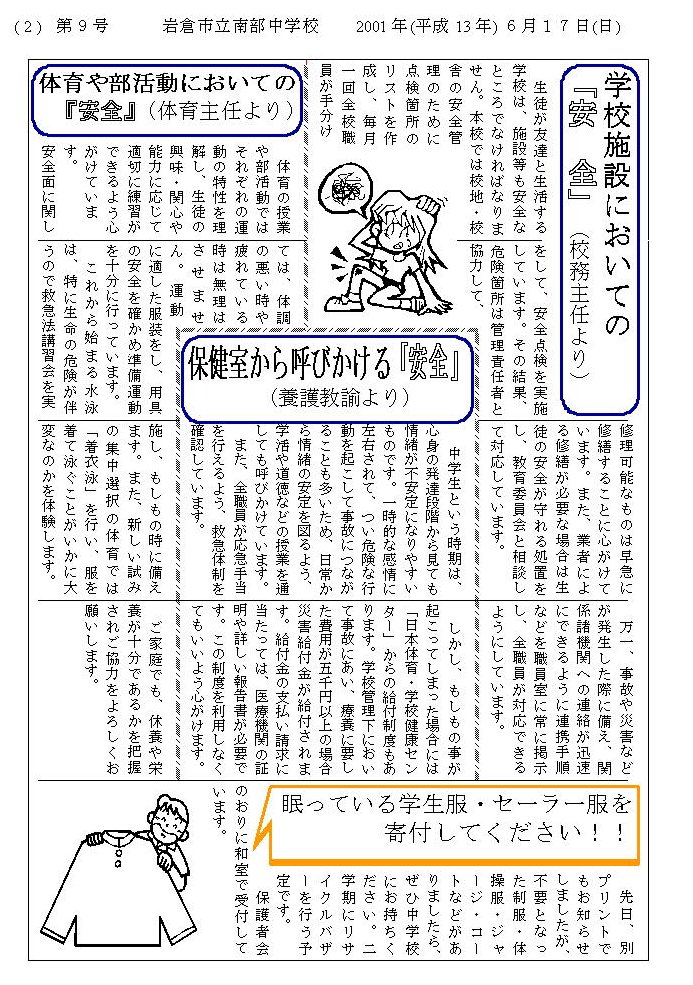 (2) 第９号　岩倉市立南部中学校　2001年(平成13年)６月１７日(日)
学校施設においての
『安　全』（校務主任より）
生徒が友達と生活する
学校は、施設等も安全な
ところでなければなりま
せん。本校では校地・校
舎の安全管
理のために
点検箇所の
リストを作
成し、毎月
一回全校職
員が手分け
をして、安全点検を実施
しています。その結果、
危険箇所は管理責任者と
協力して、
修理可能なものは早急に
修繕することに心がけて
います。また、業者によ
る修繕が必要な場合は生
徒の安全が守れる処置を
し、教育委員会と相談し
て対応しています。
万一、事故や災害など
が発生した際に備え、関
係諸機関への連絡が迅速
にできるように連携手順
などを職員室に常に掲示
し、全職員が対応できる
ようにしています。
体育や部活動においての
『安全』（体育主任より）
体育の授業
や部活動では
それぞれの運
動の特性を理
解し、生徒の
興味・関心や
能力に応じて
適切に練習が
できるよう心
がけていま
す。
安全面に関し
ては、体調
の悪い時や
疲れている
時は無理は
させませ
ん。運動
に適した服装をし、用具
の安全を確かめ準備運動
を十分に行っています。
これから始まる水泳
は、特に生命の危険が伴
うので救急法講習会を実
施し、もしもの時に備え
ます。また、新しい試み
の集中選択の体育では
「着衣泳」を行い、服を
着て泳ぐことがいかに大
変なのかを体験します。
保健室から呼びかける『安全』
（養護教諭より）
中学生という時期は、
心身の発達段階から見ても
情緒が不安定になりやすい
ものです。一時的な感情に
左右されて、つい危険な行
動を起こして事故につなが
ることも多いため、日常か
ら情緒の安定を図るよう、
学活や道徳などの授業を通
しても呼びかけています。
また、全職員が応急手当
を行えるよう、救急体制を
確認しています。
しかし、もしもの事が
起こってしまった場合には
「日本体育・学校健康セン
ター」からの給付制度もあ
ります。学校管理下におい
て事故にあい、療養に要し
た費用が五千円以上の場合
災害給付金が給付されま
す。給付金の支払い請求に
当たっては、医療機関の証
明や詳しい報告書が必要で
す。この制度を利用しなく
てもいいよう心がけます。
ご家庭でも、休養や栄
養が十分であるかを把握
されご協力をよろしくお
願いします。
眠っている学生服・セーラー服を
寄付してください！！
先日、別
プリントで
もお知らせ
しましたが、
不要となっ
た制服・体
操服・ジャ
ージ・コー
トなどがあ
りましたら、
ぜひ中学校
にお持ちく
ださい。二
学期にリサ
イクルバザ
ーを行う予
定です。
保護者会
のおりに和室で受付して
います。